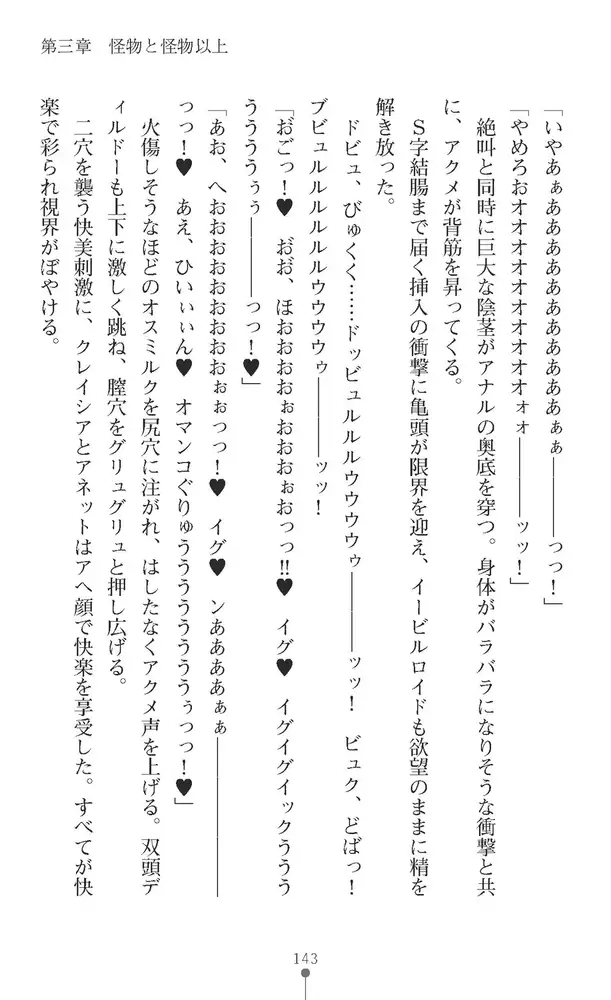 第三章　怪物と怪物以上
「いやあぁあああああああああああぁぁ――――っっ！」
「やめろおオオオオオオオオオオォォ――――ッッ！」
　絶叫と同時に巨大な陰茎がアナルの奥底を穿つ。身体がバラバラになりそうな衝撃と共
に、アクメが背筋を昇ってくる。
　Ｓ字結腸まで届く挿入の衝撃に亀頭が限界を迎え、イービルロイドも欲望のままに精を
解き放った。
　ドビュ、びゅくく……ドッビュルルルウウウウゥ――――ッッ！　ビュク、どばっ！
ブビュルルルルルルルウウウウゥ――――ッッ！
「お゛ごっ！♥　お゛お゛、ほおおおおぉおおおぉおっっ!!♥　イグ♥　イグイグイックううう
うううぅぅ――――っっ！♥」
「あお、へおおおおおおおおおぉぉっっ！♥　イグ♥　ンああああぁぁ――――――
っっ！♥　あえ、ひいぃぃん♥　オマンコぐりゅううううううううぅっっ！♥」
　火傷しそうなほどのオスミルクを尻穴に注がれ、はしたなくアクメ声を上げる。双頭デ
ィルドーも上下に激しく跳ね、膣穴をグリュグリュと押し広げる。
　二穴を襲う快美刺激に、クレイシアとアネットはアヘ顔で快楽を享受した。すべてが快
楽で彩られ視界がぼやける。
143